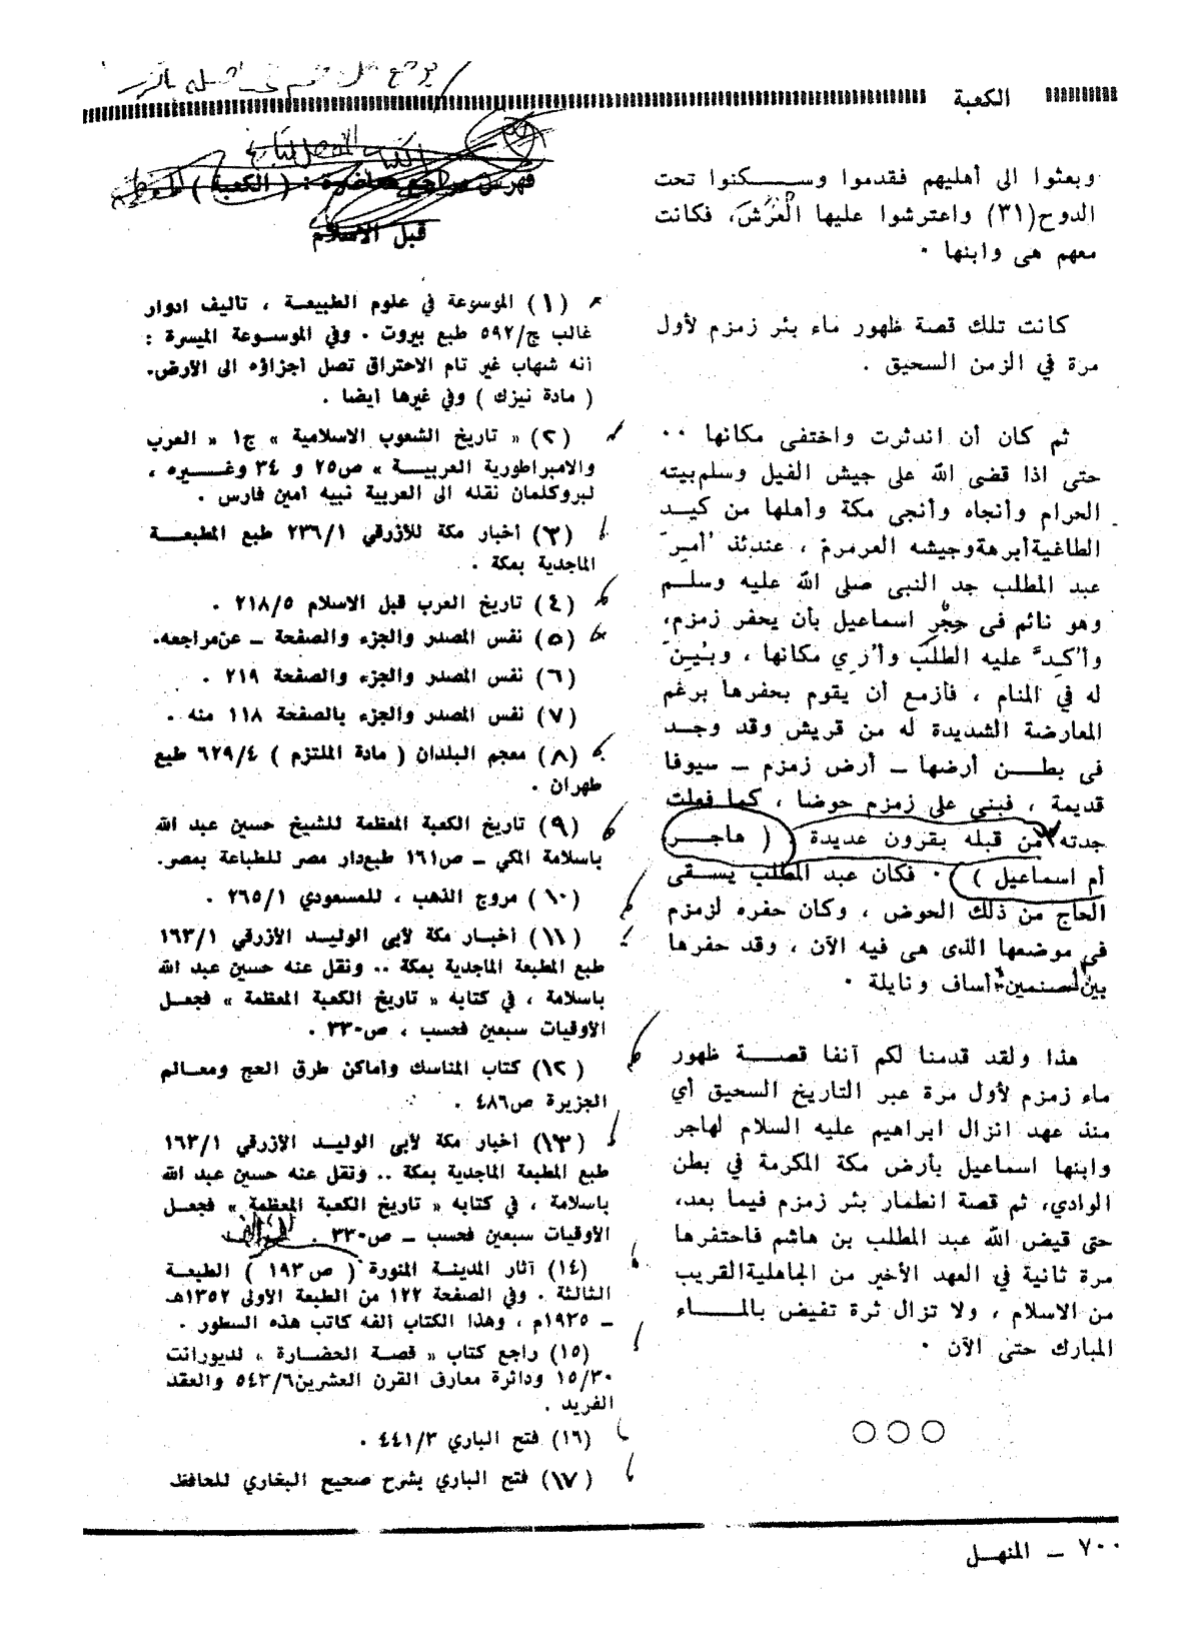 الكعبة
وبعثوا الى أهليهم فقدموا وسـكنوا تحت
الدوح(٣١) واعترشوا عليها الْعَرْشَ، فكانت
معهم هى وابنها ٠
كانت تلك قصة ظهور ماء بئر زمزم لأول
مرة في الزمن السحيق .
ثم كان أن اندثرت واختفى مكانها ٠٠
حتى اذا قضى الله على جيش الفيل وسلم بيته
الحرام وأنجاه وأنجى مكة وأهلها من كيـد
الطاغية أبرهة وجيشه العرمرم ، عندئذ أُمِرَ
عبد المطلب جد النبى صلى الله عليه وسلـم
وهو نائم فى حِجْرِ اسماعيل بأن يحفر زمزم،
وأُكِّدَ عليه الطلبُ وأُرِي مكانها ، وبُيِّنَ
له في المنام ، فأزمع أن يقوم بحفرها برغم
المعارضة الشديدة له من قريش وقد وجـد
فى بطــن أرضها – أرض زمزم – سيوفا
قديمة ، فبنى على زمزم حوضا ، كما فعلت
جدته من قبله بقرون عديدة ، ( هاجـر
أم اسماعيل ) ٠ فكان عبد المطلب يسـقى
الحاج من ذلك الحوض ، وكان حفره لزمزم
فى موضعها الذى هى فيه الآن ، وقد حفرها
بين الصنمين: أساف ونايلة ٠
هذا ولقد قدمنا لكم آنفا قصـة ظهور
ماء زمزم لأول مرة عبر التاريخ السحيق أي
منذ عهد انزال ابراهيم عليه السلام لهاجر
وابنها اسماعيل بأرض مكة المكرمة في بطن
الوادي، ثم قصة انطمار بئر زمزم فيما بعد،
حتى قيض الله عبد المطلب بن هاشم فاحتفرها
مرة ثانية في العهد الأخير من الجاهلية القريب
من الاسلام ، ولا تزال ثرة تفيض بالمــاء
المبارك حتى الآن ٠
فهرس مراجع محاضرة : ( الكعبة )
قبل الاسلام
(١) الموسوعة في علوم الطبيعـة ، تاليف ادوار
غالب ج/٥٩٢ طبع بيروت . وفي الموسـوعة الميسرة :
أنه شهاب غير تام الاحتراق تصل أجزاؤه الى الأرض.
( مادة نيزك ) وفي غيرها ايضا .
(٢) « تاريخ الشعوب الاسلامية » ج١ « العرب
والامبراطورية العربيـة » ص٢٥ و ٣٤ وغـيره ،
لبروكلمان نقله الى العربية نبيه أمين فارس .
(٣) أخبار مكة للأزرقي ٢٣٦/١ طبع المطبعـة
الماجدية بمكة .
(٤) تاريخ العرب قبل الاسلام ٢١٨/٥ .
(٥) نفس المصدر والجزء والصفحة – عن مراجعه.
(٦) نفس المصدر والجزء والصفحة ٢١٩ .
(٧) نفس المصدر والجزء بالصفحة ١١٨ منه .
(٨) معجم البلدان ( مادة الملتزم ) ٦٢٩/٤ طبع
طهران .
(٩) تاريخ الكعبة المعظمة للشيخ حسين عبد الله
باسلامة المكي – ص١٦١ طبع دار مصر للطباعة بمصر.
(١٠) مروج الذهب ، للمسعودي ٢٦٥/١ .
(١١) أخبـار مكة لأبى الوليـد الأزرقي ١٦٣/١
طبع المطبعة الماجدية بمكة .. ونقل عنه حسين عبد الله
باسلامة ، في كتابه « تاريخ الكعبة المعظمة » فجعـل
الأوقيات سبعين فحسب ، ص٣٣٠ .
(١٢) كتاب المناسك وأماكن طرق الحج ومعـالم
الجزيرة ص٤٨٦ .
(١٣) أخبار مكة لأبى الوليـد الأزرقي ١٦٣/١
طبع المطبعة الماجدية بمكة .. ونقل عنه حسين عبد الله
باسلامة ، في كتابه « تاريخ الكعبة المعظمة » فجعـل
الأوقيات سبعين فحسب – ص٣٣٠ .
(١٤) آثار المدينـة المنورة ( ص١٩٣ ) الطبعـة
الثالثة . وفي الصفحة ١٢٢ من الطبعة الأولى ١٣٥٢هـ
– ١٩٣٥م ، وهذا الكتاب ألفه كاتب هذه السطور .
(١٥) راجع كتاب « قصـة الحضـارة ، لديورانت
١٥/٣٠ ودائرة معارف القرن العشرين ٥٤٣/٦ والعقد
الفريد .
(١٦) فتح الباري ٤٤١/٣ .
(١٧) فتح الباري بشرح صحيح البخاري للحافظ
٧٠٠ – المنهـل